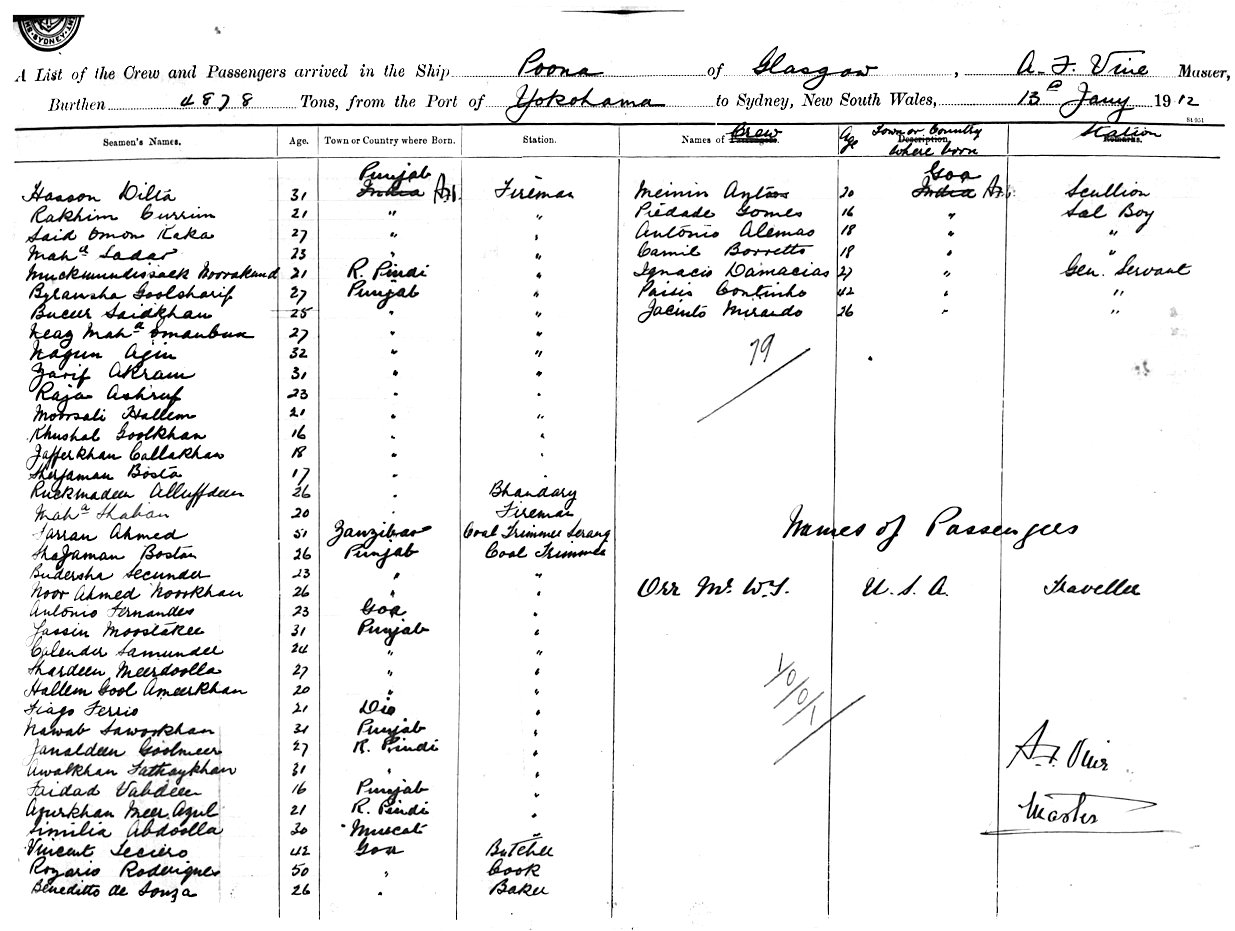 SYDNEY
A List of the Crew and Passengers arrived in the Ship Poona of Glasgow, A. F. Vine Master,
Burthen 4878 Tons, from the Port of Yokohama to Sydney, New South Wales, 13 Jany 1912
Seamen's Names. Age. Town or Country where Born. Station. Names of Passengers. Crew Age Description. Town or Country where born Remarks. Station
Punjab Goa
Hasson Ditta 31 India Fireman Meinin 20 India Scullion
Rakhim Currim 21 " " Piedade Gomes 16 " Sal Boy
Said Omon Kaka 27 " " António Alemao 18 " "
Mahd Sadar 23 " " Camil Borretto 18 " "
Muckmundissack Noorakund 21 R. Pindi " Ignacio Damacias 27 " Gen. Servant
Bylansha Goolsharif 27 Punjab " Paisis Continho 42 " "
Buccur Saidkhan 25 " " Jacinto Mirando 26 " "
Neaz Mahd Omanbux 27 " "
Nagun Agin 32 " "
79
Zarif Akram 31 " "
Raja Ashruf 23 " "
Moorsali Hallem 21 " "
Khushal Goolkhan 16 " "
Jafferkhan Callakhan 18 " "
Sherjaman Bosta 17 " "
Ruckmadeen Alluffdeen 26 " Bhandary
Mahd Shaban 20 " Fireman
Farran Ahmed 51 Zanzibar Coal Trimmer Serang
Names of Passengers
Shajaman Bostan 26 Punjab Coal Trimmer
Budersha Secunder 23 " "
Noor Ahmed Noorkhan 26 " " Orr Mr W. U.S.A. Traveller
António Fernandes 23 Goa "
Jassin Moostakee 31 Punjab "
Calender Samunder 24 " "
Shardeen Meerdoolla 27 " "
Hallem Gool Ameerkhan 20 " "
Tiago Ferrio 21 Dio "
Nawab Sawookhan 31 Punjab "
Janaldeen Goolmeer 27 R. Pindi "
A. F. Vine
Awalkhan Fathaykhan 31 " "
Faidad Vahdeen 16 Punjab "
Azurkhan Meer Azul 21 R. Pindi "
Master
Similia Abdoolla 30 Muscat "
Vincent Leciero 42 Goa Butcher
Rozario Roderigues 50 " Cook
Beneditto de Souza 26 " Baker